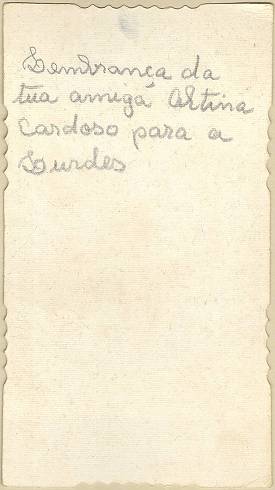 Lembrança da
tua amiga Altina
Cardoso para a
Lurdes